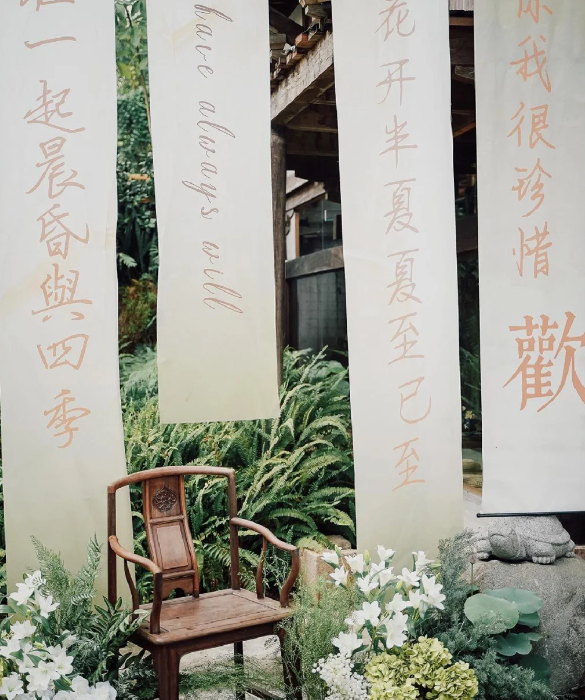 一起晨昏與四季
have always will
花开半夏夏至已至
我很珍惜
歡